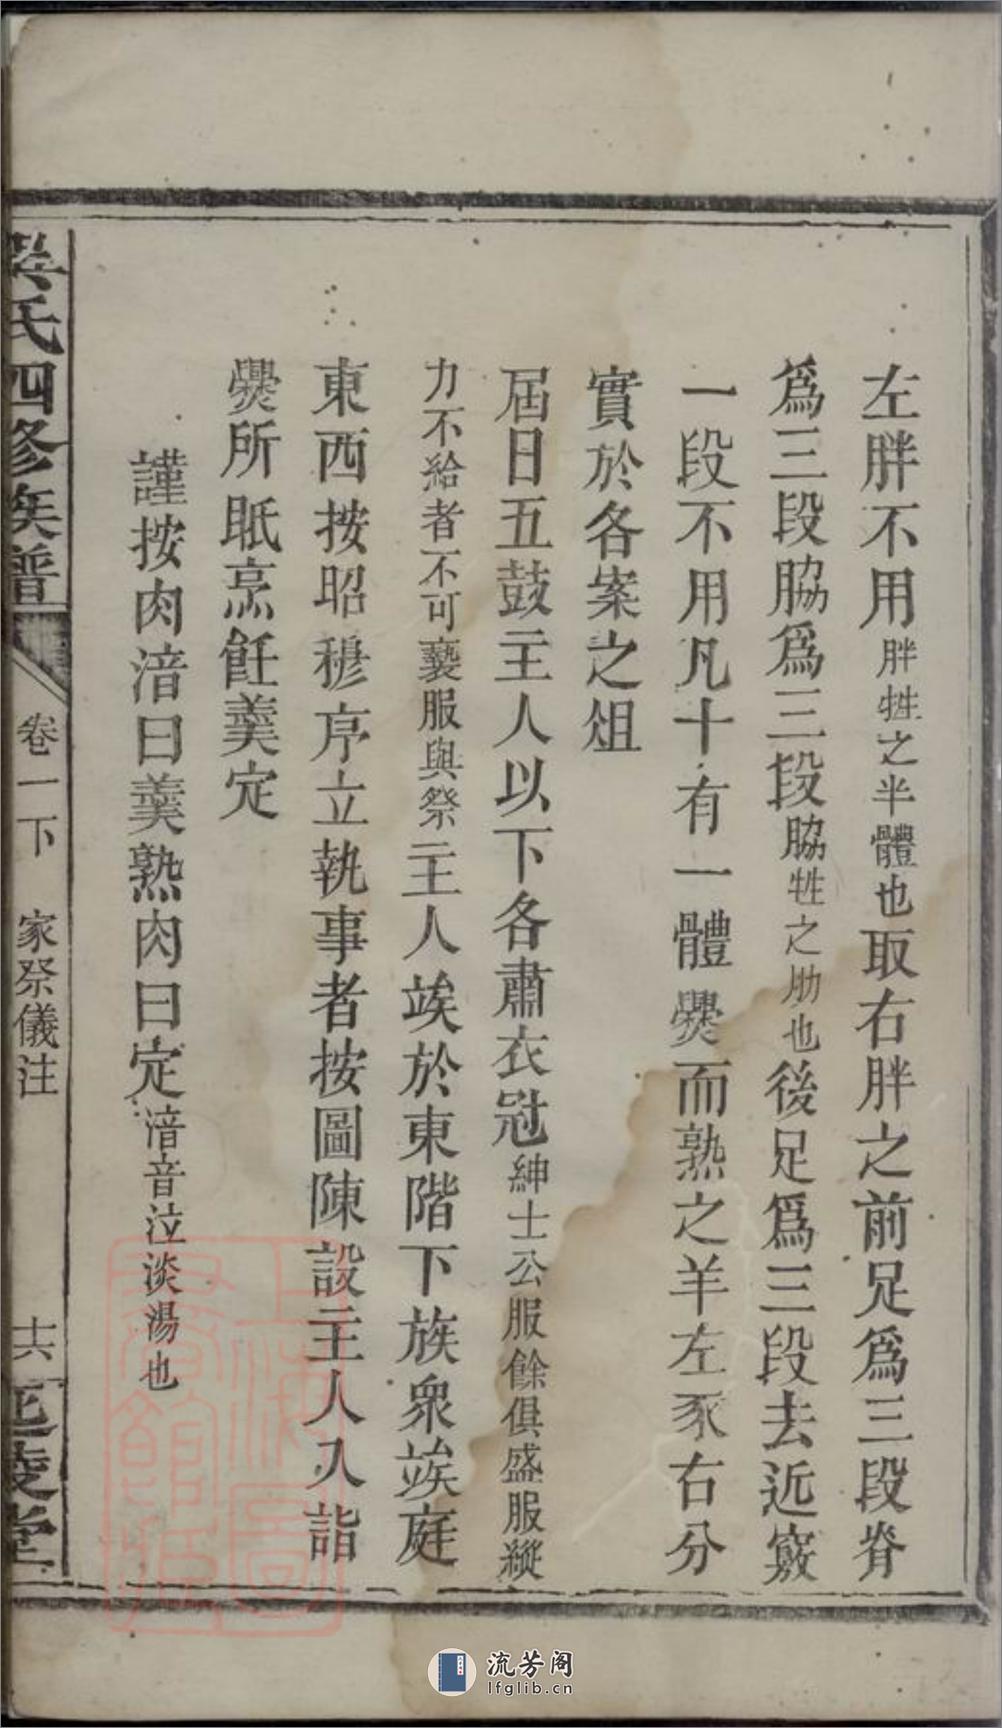 左胖不用胖牲之半體也取右胖之前足爲三段脊
爲三段脇爲三段脇牲之肋也後足爲三段去近竅
一段不用凡十有一體爨而熟之羊左豕右分
實於各案之俎
屆日五鼓主人以下各肅衣冠紳士公服餘俱盛服縱
力不給者不可褻服與祭主人竢於東階下族衆竢庭
東西按昭穆序立執事者按圖陳設主人入詣
爨所眡烹飪羹定
謹按肉湆曰羹熟肉曰定湆音泣淡湯也
吳氏四修族譜 卷一下 家祭儀注 十六 延陵堂
上海圖書館藏
流芳阁
lfglib.cn